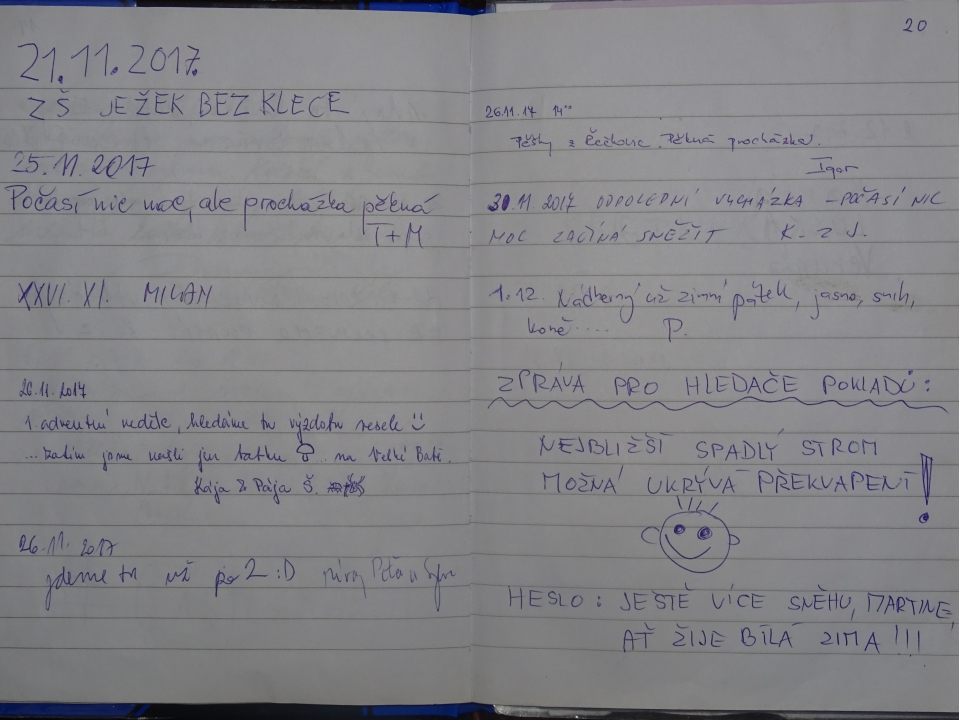 21.11.2017.
ZŠ JEŽEK BEZ KLECE
25.11.2017
Počasí nic moc, ale procházka pěkná
T+M
XXVI. XI. MILAN
26.11.2017
1. adventní neděle, hledáme tu výzdobu
... zatím jsme našli jen ... na Velké Babě.
Kája & Pája Š.
26.11.2017
jdeme tu už po 2 :D Péťa
20
26.11.17 14°°
Pěšky z Řečkovic. Pěkná procházka.
Igor
30.11 2017 ODPOLEDNÍ VYCHÁZKA – POČASÍ NIC
MOC ZAČÍNÁ SNĚŽIT K. Z J.
1.12. Nádherný už zimní pátek, jasno, sníh,
koně .... P.
ZPRÁVA PRO HLEDAČE POKLADŮ:
NEJBLIŽŠÍ SPADLÝ STROM
MOŽNÁ UKRÝVÁ PŘEKVAPENÍ!
HESLO: JEŠTĚ VÍCE SNĚHU, MARTINE,
AŤ ŽIJE BÍLÁ ZIMA!!!